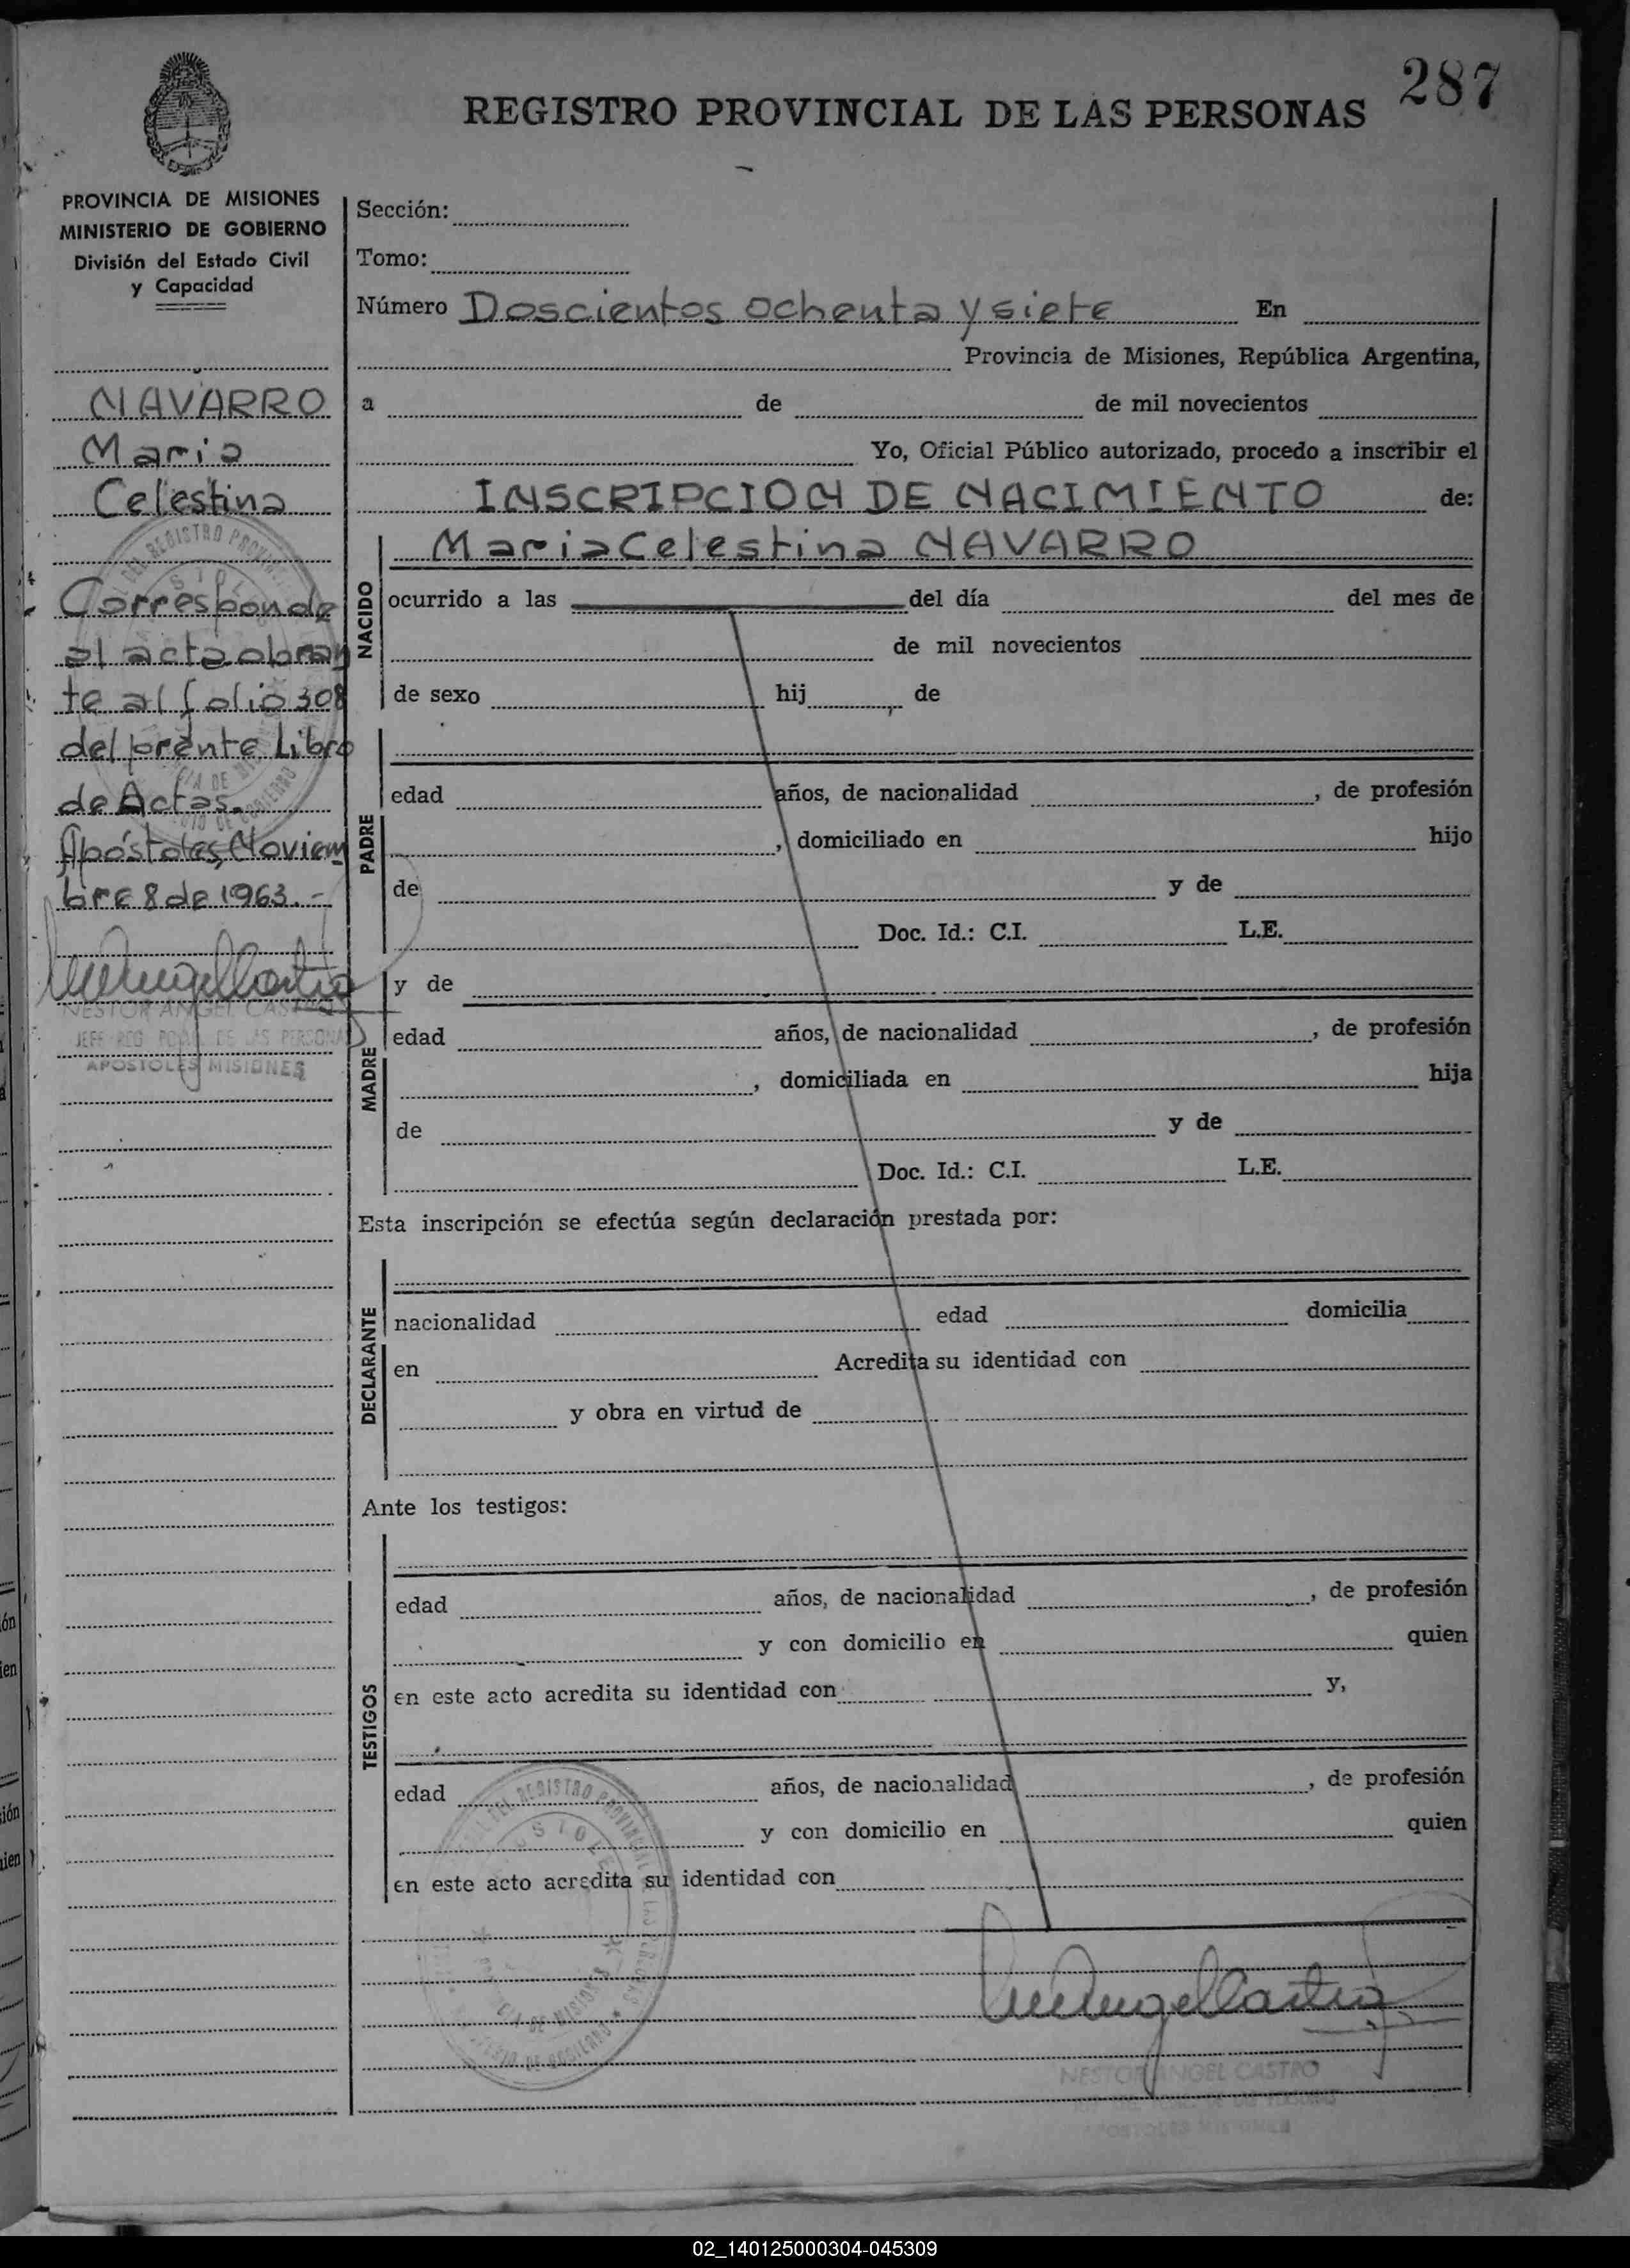 287
REGISTRO PROVINCIAL DE LAS PERSONAS
PROVINCIA DE MISIONES
MINISTERIO DE GOBIERNO
División del Estado Civil
y Capacidad
NAVARRO
Maria
Celestina
Corresponde
al acta obran
te al folio 308
del prente Libro
de Actas.
Apóstoles, Noviem
bre 8 de 1963.-
NESTOR ANGEL CASTRO
JEFE REG. DE LAS PERSONAS
APOSTOLES MISIONES
Sección:
Tomo:
Número Doscientos ochenta y siete En
Provincia de Misiones, República Argentina,
a de de mil novecientos
Yo, Oficial Público autorizado, procedo a inscribir el
INSCRIPCION DE NACIMIENTO de:
NACIDO
Maria Celestina NAVARRO
ocurrido a las del día del mes de
de mil novecientos
de sexo hij , de
PADRE
edad años, de nacionalidad , de profesión
, domiciliado en hijo
de y de
Doc. Id.: C.I. L.E.
MADRE
y de
edad años, de nacionalidad , de profesión
, domiciliada en hija
de y de
Doc. Id.: C.I. L.E.
Esta inscripción se efectúa según declaración prestada por:
DECLARANTE
nacionalidad edad domicilia
en Acredita su identidad con
y obra en virtud de
Ante los testigos:
TESTIGOS
edad años, de nacionalidad , de profesión
y con domicilio en quien
en este acto acredita su identidad con y,
edad años, de nacionalidad , de profesión
y con domicilio en quien
en este acto acredita su identidad con
DEL REGISTRO PROVINCIAL DE LAS PERSONAS
MINISTERIO DE GOBIERNO
NESTOR ANGEL CASTRO
APOSTOLES MISIONES
02_140125000304-045309